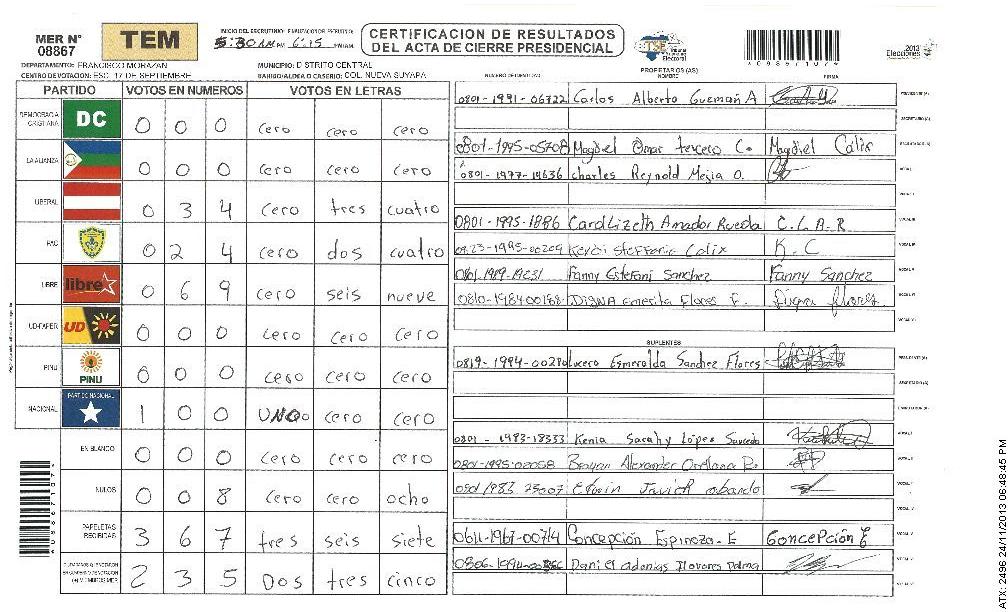 MER N° 08867
TEM
INICIO DEL ESCRUTINIO: 5:30 AM 6:15 PM/AM.
CERTIFICACION DE RESULTADOS
DEL ACTA DE CIERRE PRESIDENCIAL
TSE
Tribunal Supremo Electoral
2013
Elecciones
DEPARTAMENTO: FRANCISCO MORAZAN
MUNICIPIO: DISTRITO CENTRAL
CENTRO DE VOTACION: ESC. 17 DE SEPTIEMBRE
BARRIO/ALDEA O CASERIO: COL. NUEVA SUYAPA
PROPIETARIOS (AS)
NOMBRE
FIRMA
PARTIDO VOTOS EN NUMEROS VOTOS EN LETRAS
DEMOCRACIA CRISTIANA DC 0 0 0 cero cero cero
LA ALIANZA 0 0 0 cero cero cero
LIBERAL 0 3 4 cero tres cuatro
PAC 0 2 4 cero dos cuatro
LIBRE libre 0 6 9 cero seis nueve
UD-FAPER UD 0 0 0 cero cero cero
PINU PINU 0 0 0 cero cero cero
NACIONAL PARTIDO NACIONAL 1 0 0 UNO cero cero
EN BLANCO 0 0 0 cero cero cero
NULOS 0 0 8 cero cero ocho
PAPELETAS RECIBIDAS 3 6 7 tres seis siete
2 3 5 Dos tres cinco
0801-1991-06722 Carlos Alberto Guzmán A
0801-1995-05708 Magdiel Omar tercero C. Magdiel Cálix
0801-1977-14636 charles Reynold Mejia O.
0801-1995-1886 Carol Lizeth Amador Rueda C.L.A.R.
Keydi Steffania Calix K.C
0801-1989-19231 Fanny Estefani Sanchez Fanny Sanchez
0810-1984-00188 DIGNA emerita Flores F.
SUPLENTES
0819-1994-00280 Lucero Esmeralda Sandez Flores
0801-1983-18333 Kenia Sarahy López Saucedo
0801-1995-02058 Brayan Alexander Orellana R.
0801 1983 23007 Edwin Javier obando
0611-1967-00714 Concepción Espinoza-E Concepción E
Daniel adonias
ATX: 2496 24/11/2013 06:48:45 PM